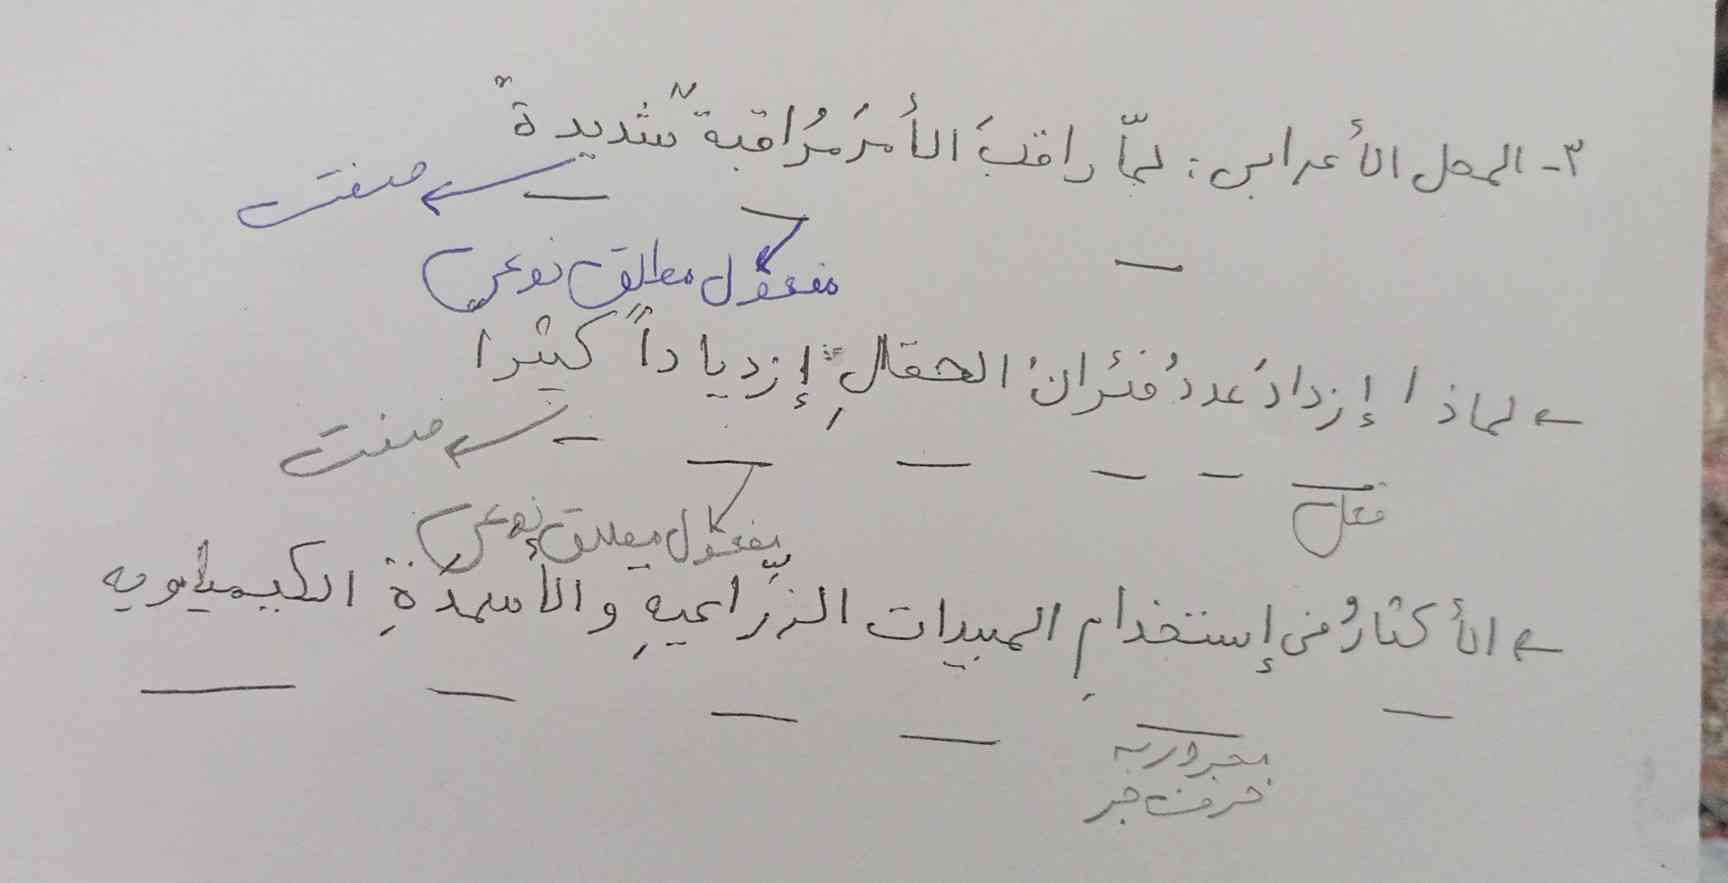 ٣- المحل الأعرابی: لمّا راقبَ الأمرَ مُراقبة ً شديدة ً
صفت
مفعول مطلق نوعی
← لماذا إزدادَ عددُ فئرانُ الحقالِ إزدياداً كثيرا
صفت
فعل
مفعول مطلق نوعی
← الأكثارُ فی إستخدامِ المبيدات الزّراعيهِ والأسمدةِ الكيمياويه
مجرور به
حرف جر